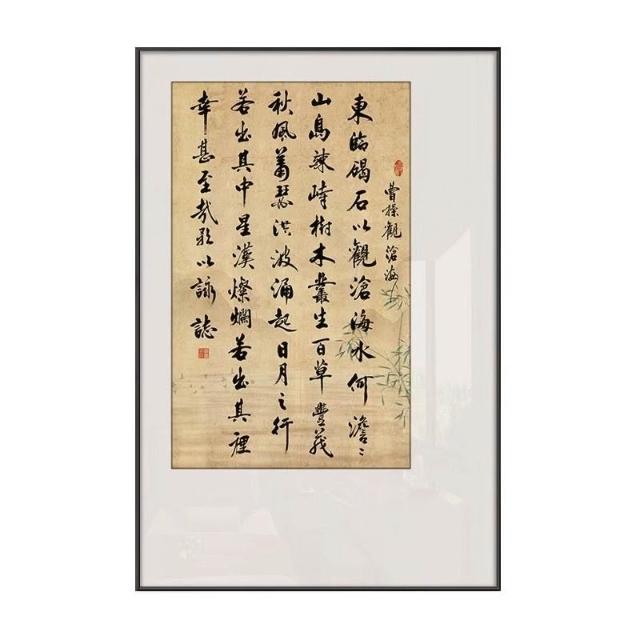 曹操觀滄海
東臨碣石以觀滄海水何澹〻
山島竦峙樹木叢生百草豐茂
秋風蕭瑟洪波涌起日月之行
若出其中星漢燦爛若出其裡
幸甚至哉歌以詠誌